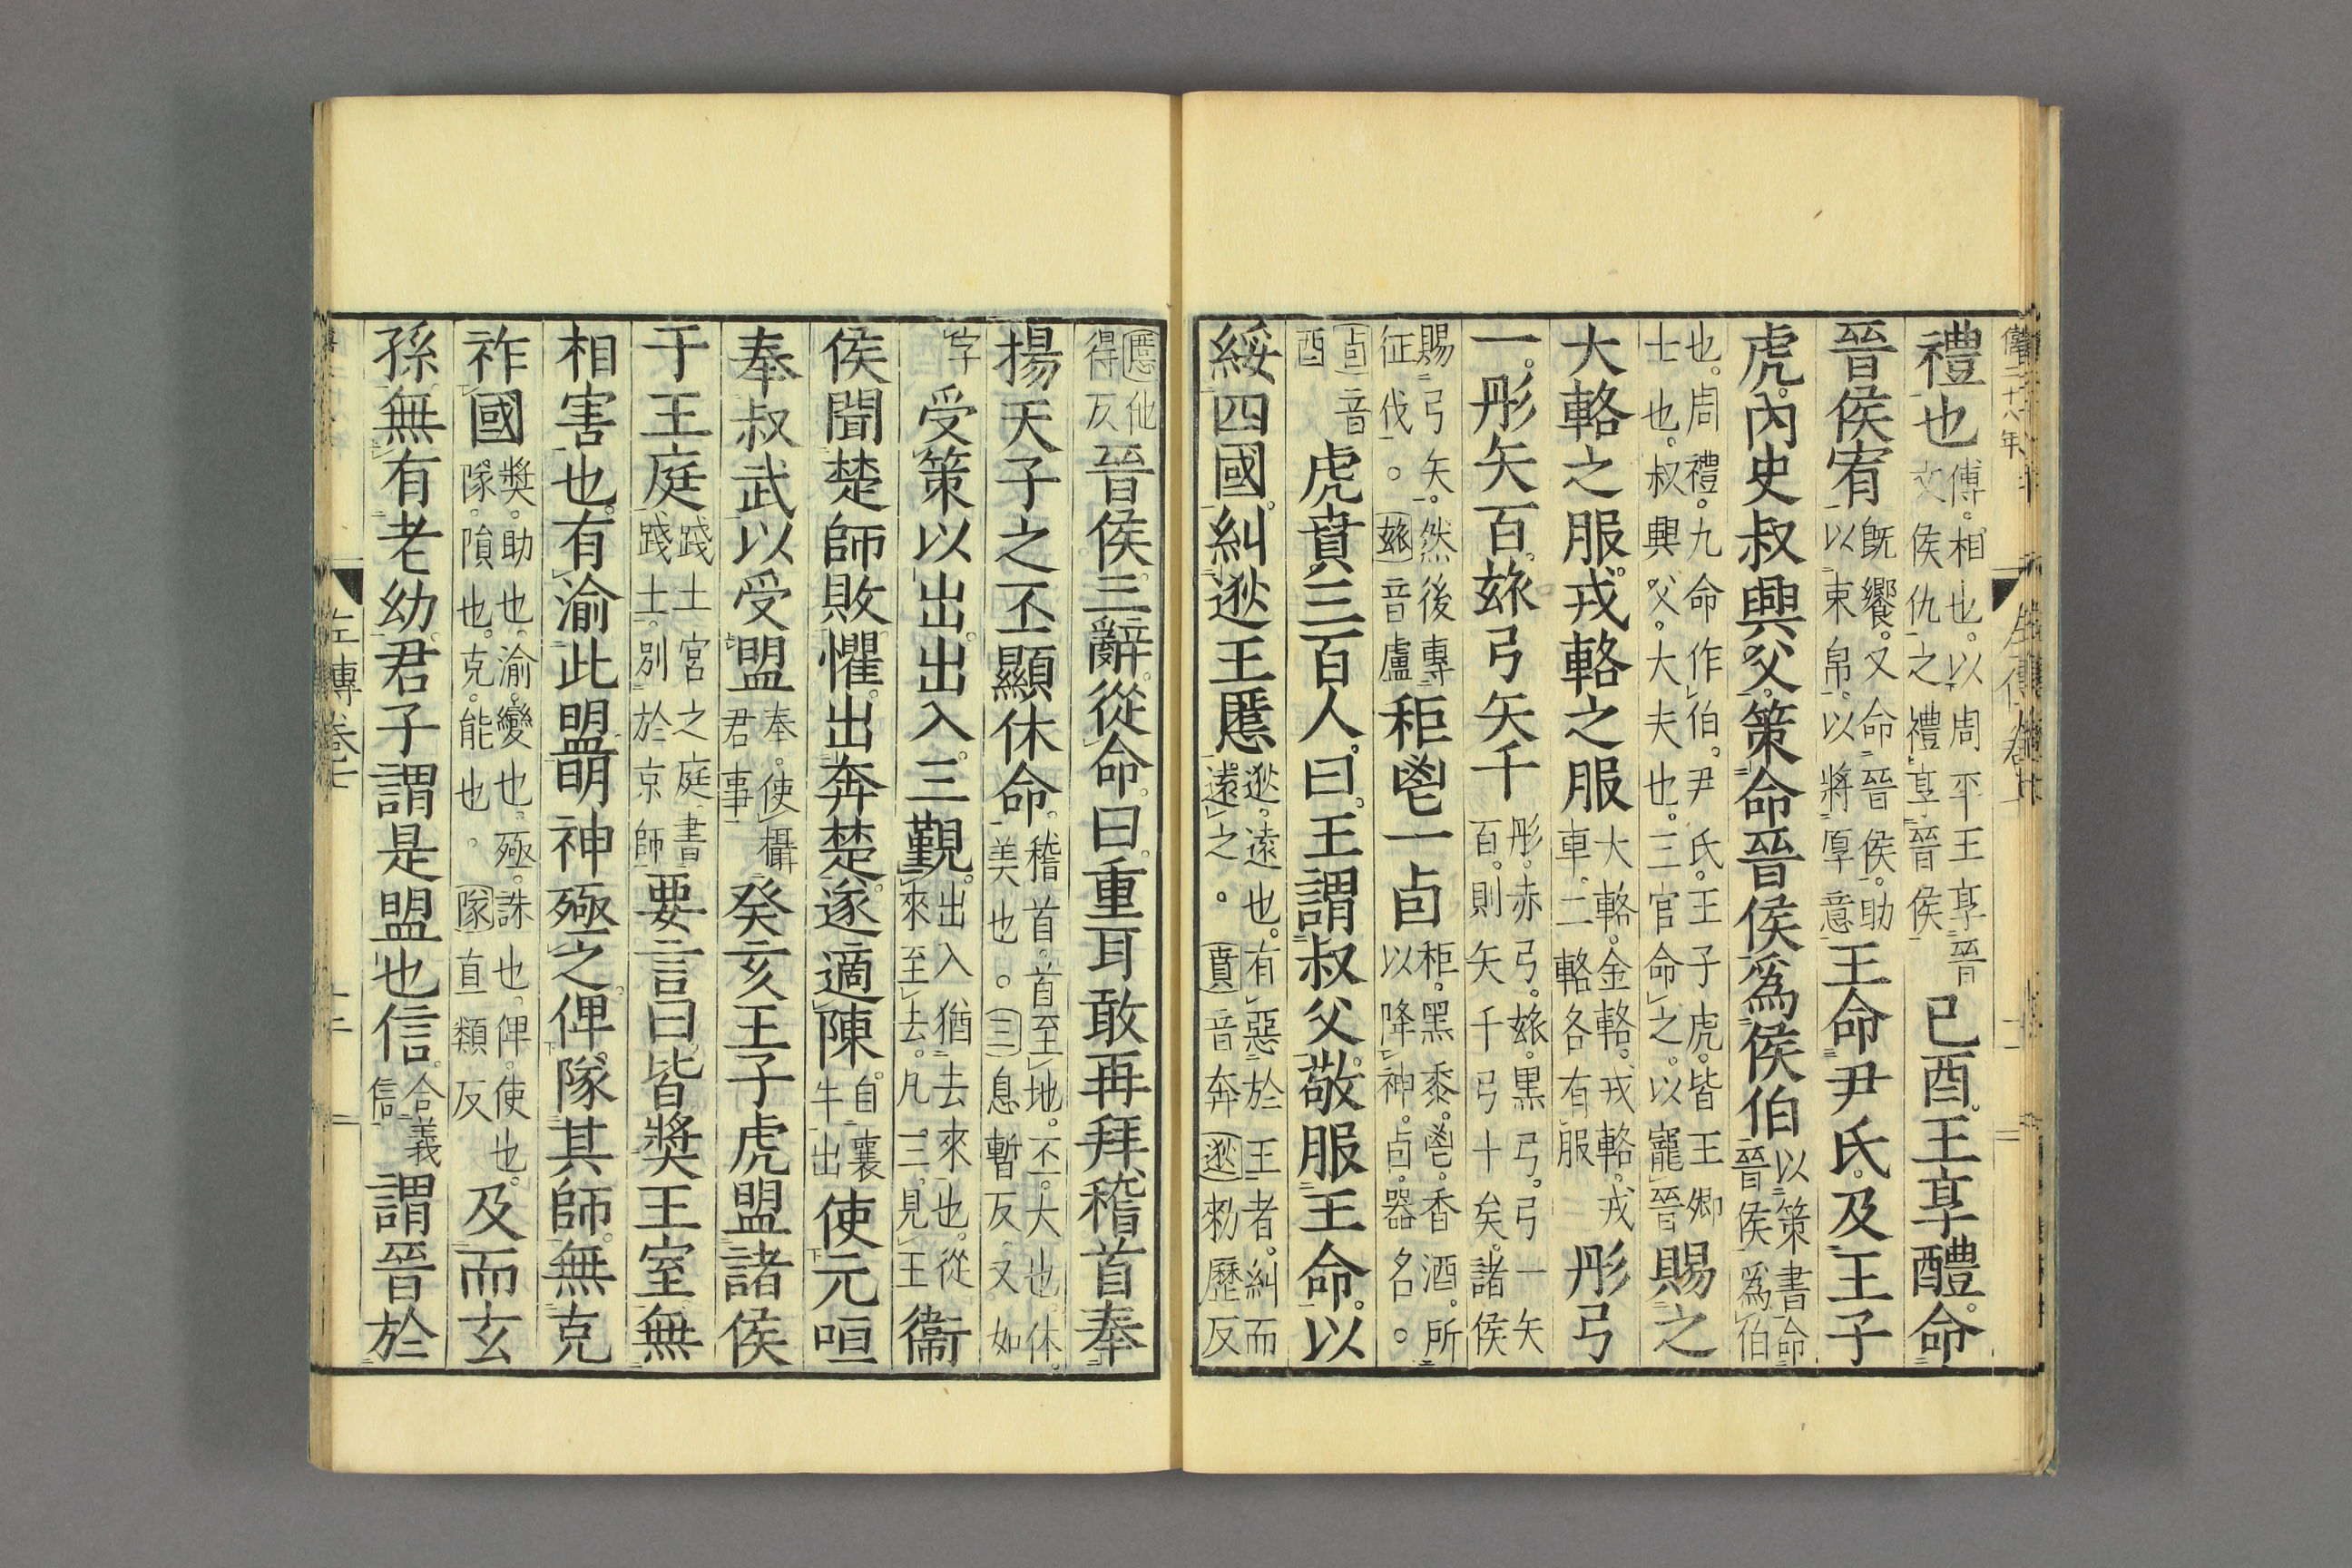 傳二十八年
禮也傅。相也。以周平王享晉文侯仇之禮享晉侯已酉。王享醴。命
晉侯宥既饗。又命晉侯。助以束帛。以將厚意王命尹氏。及王子
虎。內史叔興父。策命晉侯爲侯伯以策書命晉侯爲伯
也。周禮。九命作伯。尹氏。王子虎。皆王卿士也。叔興父。大夫也。三官命之。以寵晉賜之
大輅之服。戎輅之服大輅。金輅。戎輅。戎車。二輅各有服彤弓
一。彤矢百。玈弓矢千彤。赤弓。玈。黑弓。弓一矢百。則矢千弓十矣。諸侯
賜弓矢。然後專征伐。玈音盧秬鬯一卣秬。黑黍。鬯。香酒。所以降神。卣。器名。
卣音酉虎賁三百人。曰。王謂叔父。敬服王命。以
綏四國。糾逖王慝逖。遠也。有惡於王者。糾而遠之。賁音奔逖勑歷反
慝他得反晉侯三辭。從命。曰。重耳敢再拜稽首奉
揚天子之丕顯休命。稽首。首至地。丕。大也。休。美也。三息暫反又如
字受策以出。出入。三覲。出入猶去來也。從來至去。凡三見王衞
侯聞楚師敗。懼。出奔楚。遂適陳。自襄牛出使元咺
奉叔武以受盟奉。使攝君事癸亥王子虎盟諸侯
于王庭踐土宮之庭。書踐土。別於京師要言曰。皆奬王室無
相害也。有渝此盟。明神殛之。俾隊其師。無克
祚國奬。助也。渝。變也。殛。誅也。俾。使也。隊。隕也。克。能也。隊直類反及而玄
孫。無有老幼。君子謂是盟也信。合義信謂晉於
左傳卷七
十二